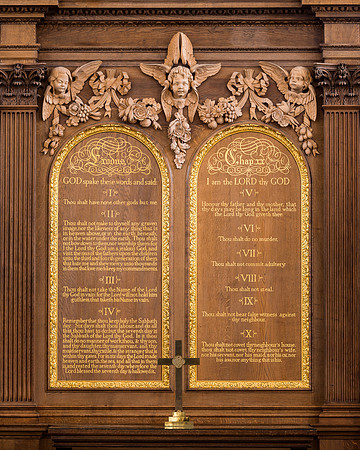 Exodus
GOD spake these words and said:
I
Thou shalt have none other gods but me
II
Thou shalt not make to thyself any graven
image, nor the likeness of any thing that is
in heaven above, or in the earth beneath,
or in the water under the earth. Thou shalt
not bow down to them, nor worship them: for
I the LORD thy GOD am a jealous GOD, and
visit the sins of the fathers upon the children
unto the third and fourth generation of them
that hate me: and shew mercy unto thousands
in them that love me & keep my commandments
III
Thou shalt not take the Name of the Lord
thy God in vain: for the Lord will not hold him
guiltless, that taketh his Name in vain.
IV
Remember that thou keep holy the Sabbath
day. Six days shalt thou labour, and do all
that thou hast to do; but the seventh day is
the Sabbath of the Lord thy God. In it thou
shalt do no manner of work, thou, & thy son,
and thy daughter, thy manservant, and thy
maidservant, thy cattle, & the stranger that is
within thy gates. For in six days the Lord made
heaven and earth, the sea, and all that in them
is, and rested the seventh day: wherefore the
Lord blessed the seventh day & hallowed it.
Chap. xx
I am the LORD thy GOD
V
Honour thy father and thy mother, that
thy days may be long in the land, which
the Lord thy God giveth thee
VI
Thou shalt do no murder.
VII
Thou shalt not commit adultery.
VIII
Thou shalt not steal.
IX
Thou shalt not bear false witness against
thy neighbour.
X
Thou shalt not covet thy neighbour's house,
thou shalt not covet thy neighbour's wife,
nor his servant, nor his maid, nor his ox, nor
his ass, nor any thing that is his.